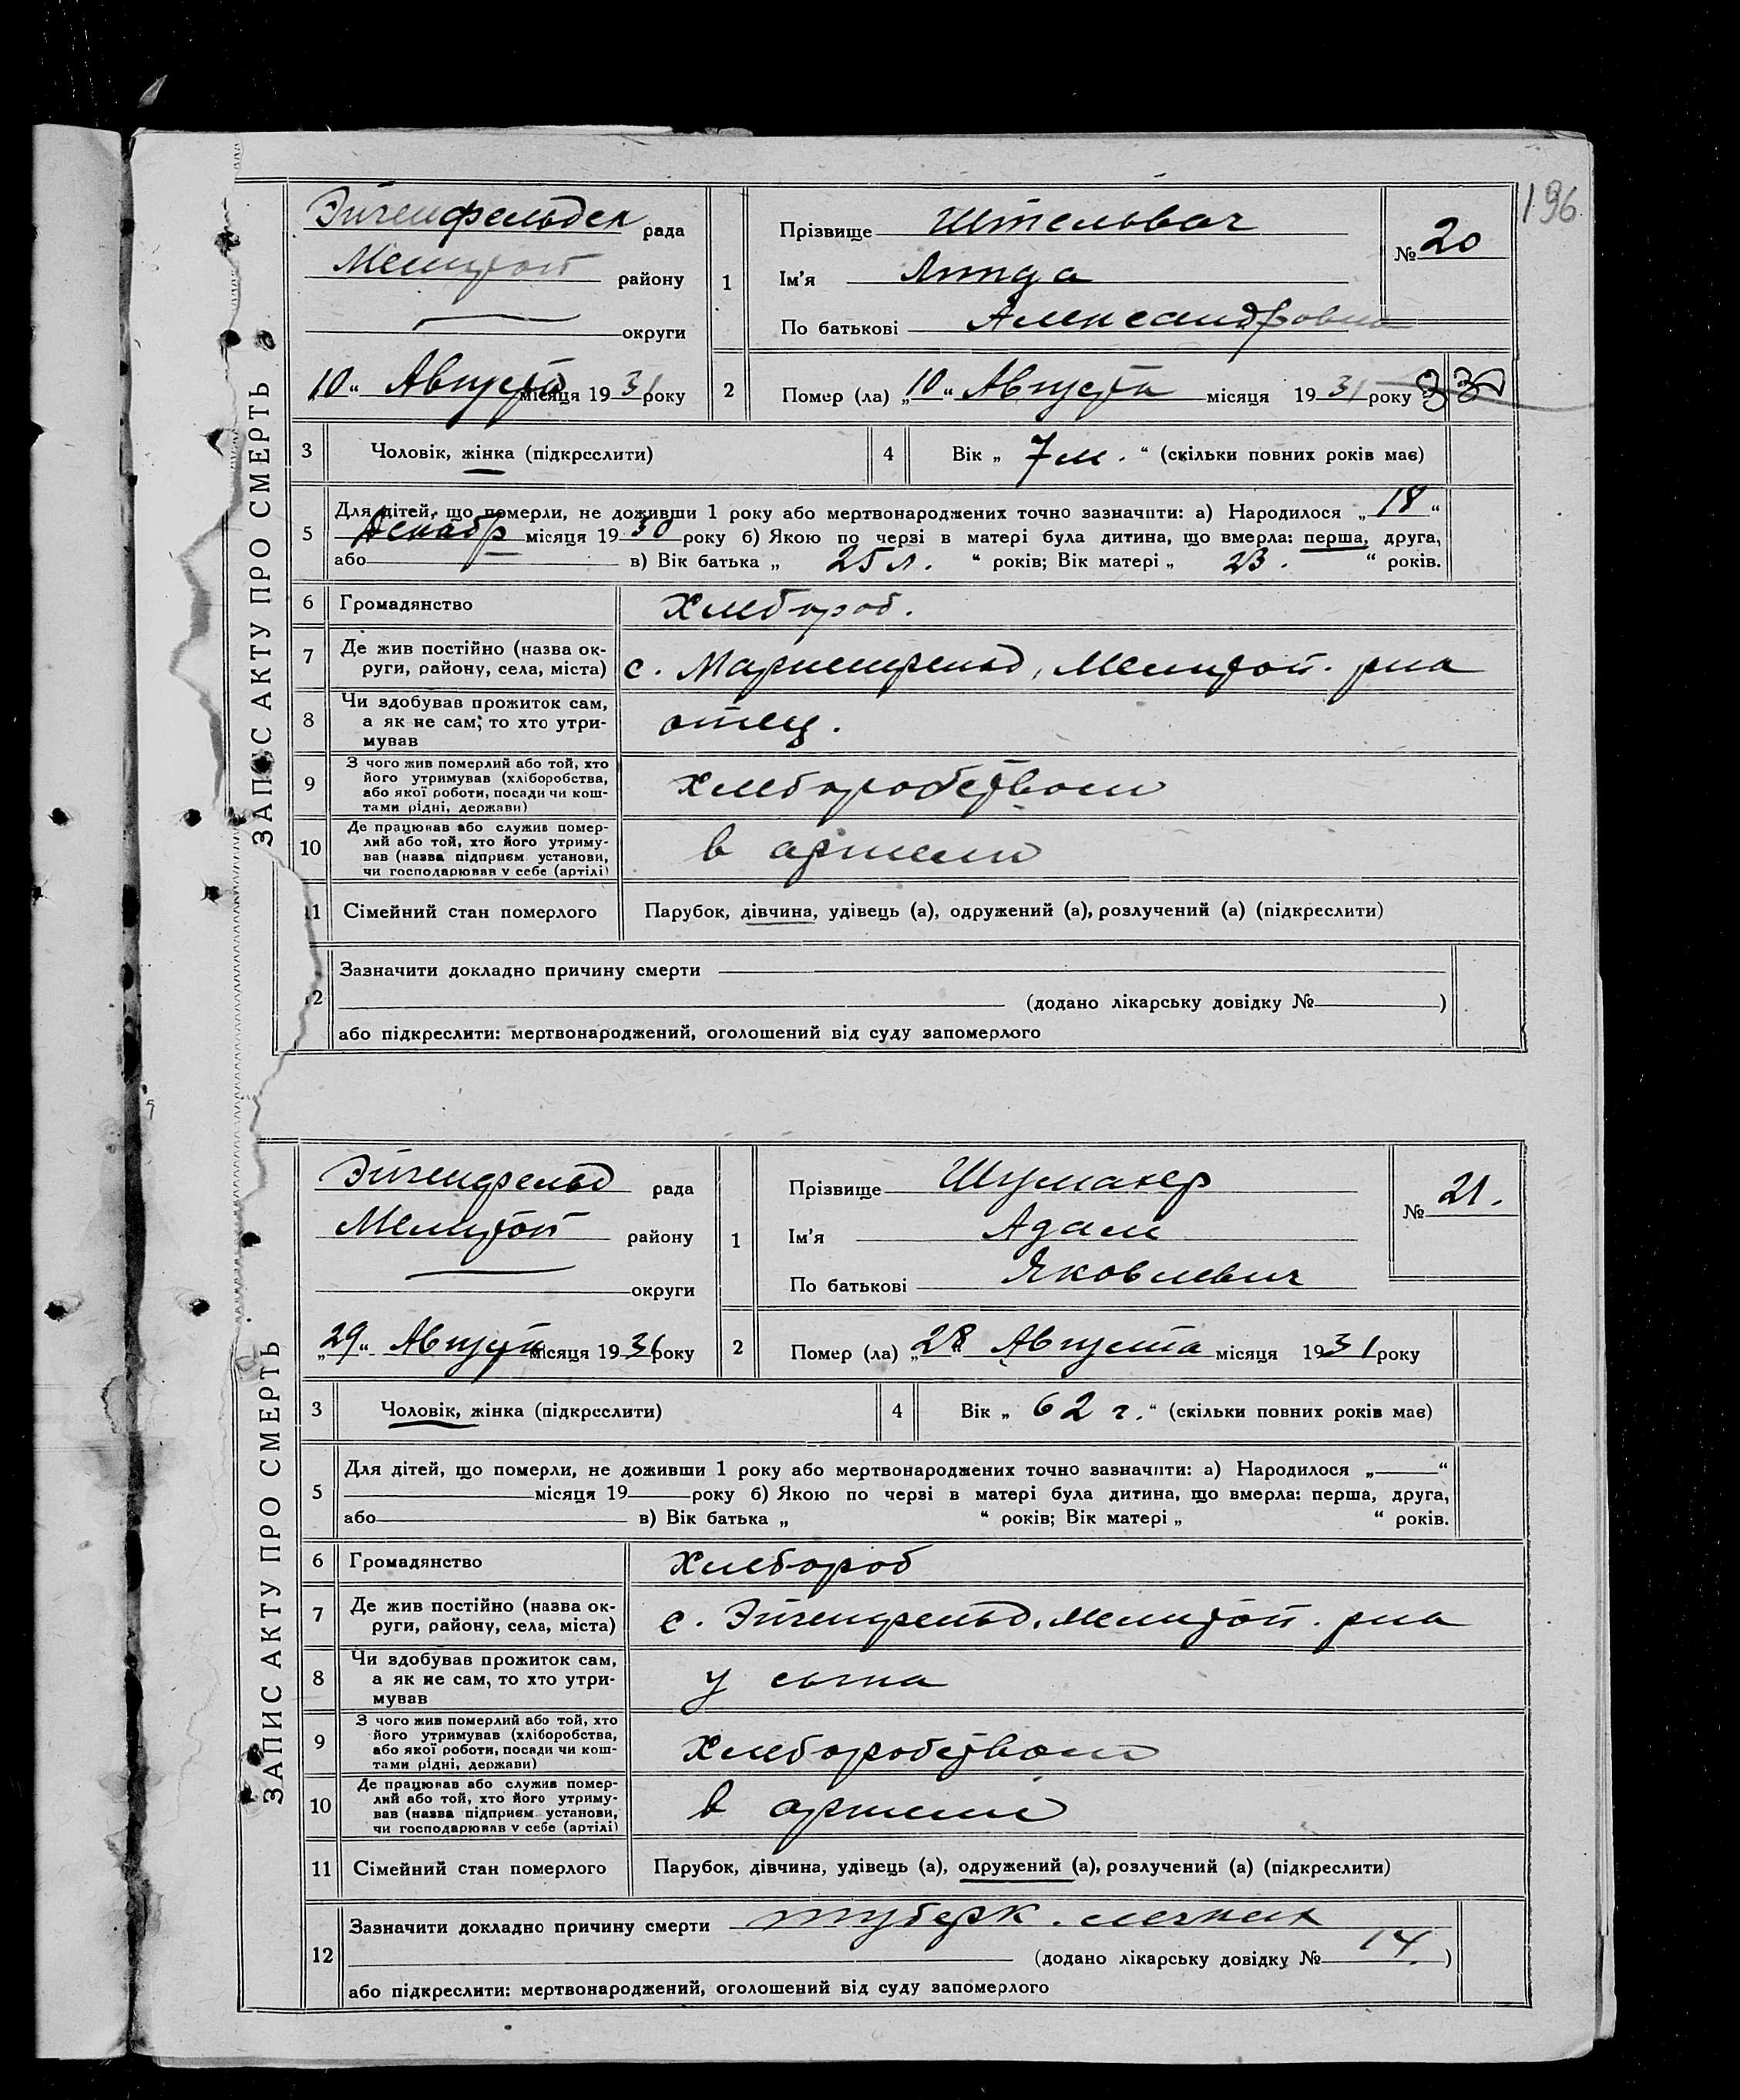 196
ЗАПИС АКТУ ПРО СМЕРТЬ
Эйгенфельдск рада
Мелитоп району
округи
„10“ Августа місяця 1931 року
1
Прізвище Штельвач
Ім'я Линда
По батькові Александровна
№ 20
2
Помер (ла) „10“ Августа місяця 1931 року
330
3
Чоловік, жінка (підкреслити)
4
Вік „ 7 м. “ (скільки повних років має)
5
Для дітей, що померли, не доживши 1 року або мертвонароджених точно зазначити: а) Народилося „18“
Декабр місяця 1930 року б) Якою по черзі в матері була дитина, що вмерла: перша, друга,
або в) Вік батька „ 25 л. “ років; Вік матері „ 23. “ років.
6
Громадянство
Хлебороб.
7
Де жив постійно (назва ок-
руги, району, села, міста)
с. Мариенфельд, Мелитоп. р-на
8
Чи здобував прожиток сам,
а як не сам, то хто утри-
мував
отец.
9
З чого жив померлий або той, хто
його утримував (хліборобства,
або якої роботи, посади чи кош-
тами рідні, держави)
Хлеборобством
10
Де працював або служив помер-
лий або той, хто його утриму-
вав (назва підприєм. установи,
чи господарював у себе (артілі)
в артели
11
Сімейний стан померлого
Парубок, дівчина, удівець (а), одружений (а), розлучений (а) (підкреслити)
12
Зазначити докладно причину смерти
(додано лікарську довідку № )
або підкреслити: мертвонароджений, оголошений від суду запомерлого
ЗАПИС АКТУ ПРО СМЕРТЬ
Эйгенфельд рада
Мелитоп району
округи
„29“ Августа місяця 1931 року
1
Прізвище Шумахер
Ім'я Адам
По батькові Яковлевич
№ 21.
2
Помер (ла) „28 Августа місяця 1931 року
3
Чоловік, жінка (підкреслити)
4
Вік „ 62 г. “ (скільки повних років має)
5
Для дітей, що померли, не доживши 1 року або мертвонароджених точно зазначити: а) Народилося „ “
місяця 19 року б) Якою по черзі в матері була дитина, що вмерла: перша, друга,
або в) Вік батька „ “ років; Вік матері „ “ років.
6
Громадянство
Хлебороб
7
Де жив постійно (назва ок-
руги, району, села, міста)
с. Эйгенфельд, Мелитоп. р-на
8
Чи здобував прожиток сам,
а як не сам, то хто утри-
мував
у сына
9
З чого жив померлий або той, хто
його утримував (хліборобства,
або якої роботи, посади чи кош-
тами рідні, держави)
Хлеборобством
10
Де працював або служив помер-
лий або той, хто його утриму-
вав (назва підприєм. установи,
чи господарював у себе (артілі)
в артели
11
Сімейний стан померлого
Парубок, дівчина, удівець (а), одружений (а), розлучений (а) (підкреслити)
12
Зазначити докладно причину смерти туберк. легких
(додано лікарську довідку № 14. )
або підкреслити: мертвонароджений, оголошений від суду запомерлого